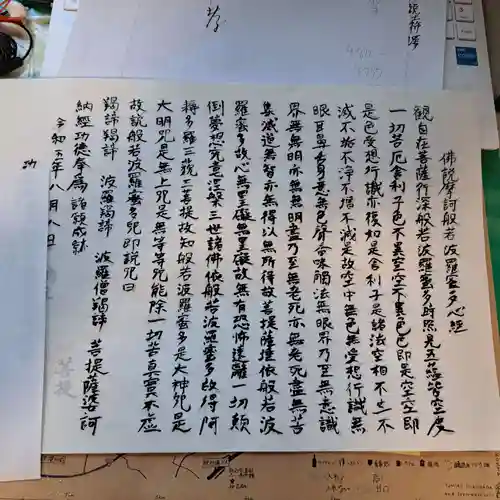 佛説摩訶般若波羅蜜多心経
観自在菩薩行深般若波羅蜜多時照見五蘊皆空度
一切苦厄舎利子色不異空空不異色色即是空空即
是色受想行識亦復如是舎利子是諸法空相不生不
滅不垢不浄不増不減是故空中無色無受想行識無
眼耳鼻舌身意無色聲香味觸法無眼界乃至無意識
界無無明亦無無明盡乃至無老死亦無老死盡無苦
集滅道無智亦無得以無所得故菩提薩埵依般若波
羅蜜多故心無罣礙無罣礙故無有恐怖遠離一切顛
倒夢想究竟涅槃三世諸佛依般若波羅蜜多故得阿
耨多羅三藐三菩提故知般若波羅蜜多是大神咒是
大明咒是無上咒是無等等咒能除一切苦真實不虚
故説般若波羅蜜多咒即説咒曰
羯諦羯諦 波羅羯諦 波羅僧羯諦 菩提薩婆訶
納経功徳奉為諸願成就
令和五年八月八日
菩提